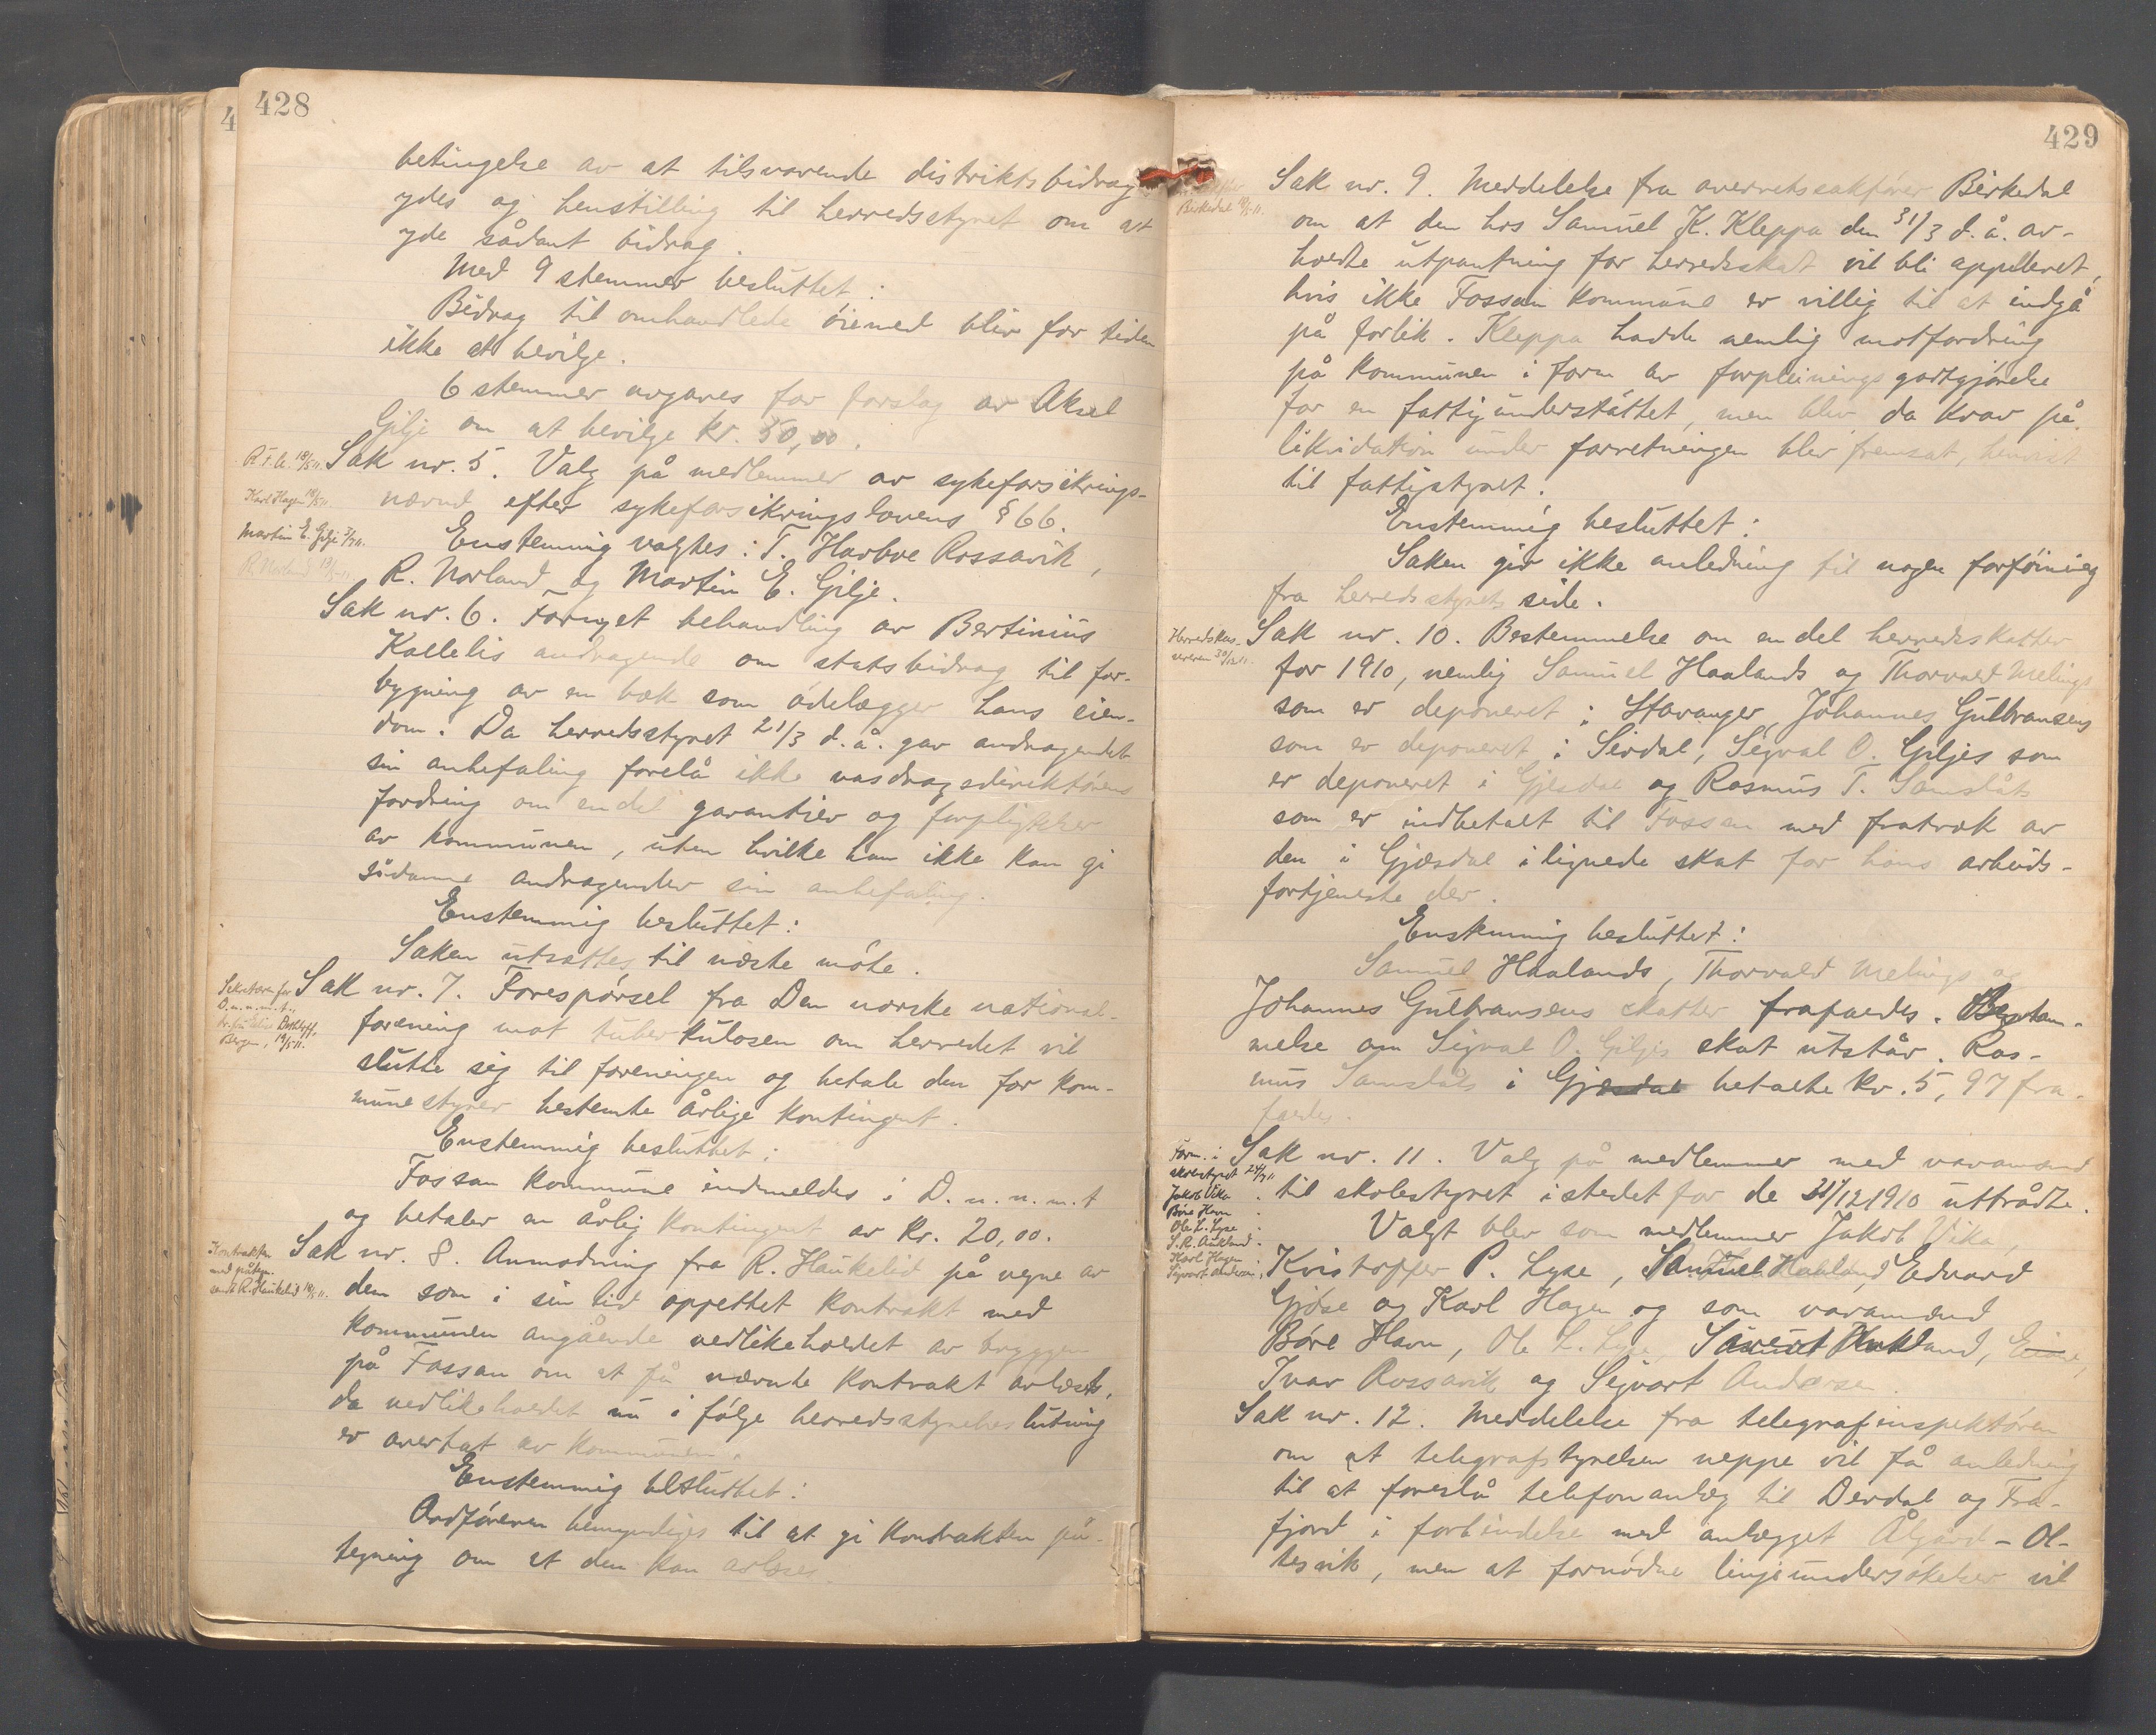 428
betingelse av at tilsvarende distriktsbidrag
ydes og henstilling til herredsstyret om at
yde sådant bidrag.
Med 9 stemmer besluttet:
Bidrag til omhandlede øiemed blir for tiden
ikke at bevilge.
6 stemmer avgaves for forslag av Aksel
Gilje om at bevilge kr. 50,00.
R.T.A. 18/5 11.
Sak nr. 5. Valg på medlemmer av sykeforsikrings-
Karl Hagen 18/5 11.
nævnd efter sykeforsikringslovens § 66.
Martin E. Gilje 3/7 11.
Enstemmig valgtes: T. Harboe Rossavik,
R. Norland
R. Norland og Martin E. Gilje.
Sak nr. 6. Fornyet behandling av Bertinius
Kallelis andragende om statsbidrag til for-
bygning av en bæk som ødelægger hans eien-
dom. Da herredsstyret 21/3 d.å. gav andragendet
sin anbefaling forelå ikke vasdragsdirektørens
fordring om endel garantier og forpligtelser
av kommunen, uten hvilke han ikke kan gi
sådanne andragender sin anbefaling.
Enstemmig besluttet:
Saken utsattes til næste møte.
Sekretæren for
D.n.n.m.t.,
Bergen, 19/5 11.
Sak nr. 7. Forespørsel fra Den norske national-
forening mot tuberkulosen om herredet vil
slutte sig til foreningen og betale den for kom-
munestyrer bestemte årlige kontingent.
Enstemmig besluttet:
Fossan kommune indmeldes i D.n.n.m.t
og betaler en årlig kontingent av kr. 20,00.
Kontrakten
med påtegn.
sendt R. Haukelid 18/5 11.
Sak nr. 8. Anmodning fra R. Haukelid på vegne av
dem som i sin tid oprettet kontrakt med
kommunen angående vedlikeholdet av bryggen
på Fossan om at få nævnte kontrakt avlæst,
da vedlikeholdet nu i følge herredsstyrebeslutning
er overtat av kommunen.
Enstemmig besluttet:
Ordføreren bemyndiges til at gi kontrakten på-
tegning om at den kan avløses.
429
Birkedal 18/5 11.
Sak nr. 9. Meddelelse fra overretssakfører Birkedal
om at den hos Samuel K. Kleppa den 31/3 d.å. av-
holdte utpantning for herredsskat vil bli appelleret,
hvis ikke Fossan kommune er villig til at indgå
på forlik. Kleppa hadde nemlig motfordring
på kommunen i form av forpleiningsgodtgjørelse
for en fattigunderstøttet, men blev, da krav på
likvidation under forretningen blev fremsat, henvist
til fattigstyret.
Enstemmig besluttet:
Saken gir ikke anledning til nogen forføining
fra herredsstyrets side.
Herredskas-
sereren 30/12 11.
Sak nr. 10. Bestemmelse om endel herredsskatter
for 1910, nemlig Samuel Haalands og Thorvald Melings
som er deponeret i Stavanger, Johannes Gulbransens
som er deponeret i Sirdal, Sigval O. Giljes som
er deponeret i Gjesdal og Rasmus T. Samslåts
som er indbetalt til Fossan med fratræk av
den i Gjæsdal ilignede skat for hans arbeids-
fortjeneste der.
Enstemmig besluttet:
Samuel Haalands, Thorvald Melings og
Johannes Gulbransens skatter frafaldes. Bestem-
melse om Sigval O. Giljes skat utstår. Ras-
mus Samslåts i Gjæsdal betalte kr. 5,97 fra-
faldes.
Form. i
skolestyret 24/7 11.
Jakob Vika
Børe Havn
Ole L. Lyse
S. R. Aukland
Karl Hagen
Sigvart Andersen
Sak nr. 11. Valg på medlemmer med varamænd
til skolestyret istedet for de 31/12 1910 uttrådte.
Valgt blev som medlemmer Jakob Vika,
Kristoffer P. Lyse, Samuel Haaland, Edvard
Gjøse og Karl Hagen og som varamænd
Børe Havn, Ole L. Lyse, Aukland,
Ivar Rossavik og Sigvart Andersen.
Sak nr. 12. Meddelelse fra telegrafinspektøren
om at telegrafstyrelsen neppe vil få anledning
til at foreslå telefonanlæg til Derdal og Fra-
fjord i forbindelse med anlægget Ålgård - Ol-
tesvik, men at fornødne linjeundersøkelser vil